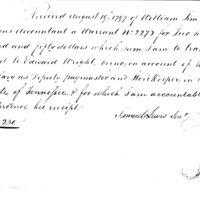 Received August 19th 1797 of William Sim
ons Accountant a Warrant No 2273 for Two
and fifty dollars which sum I am to
it to Edward Wright, being on account of
as Deputy paymaster and Storekeeper in
of Tennessee, & for which I am accountable
his receipt.
Samuel Lewis Senr
250